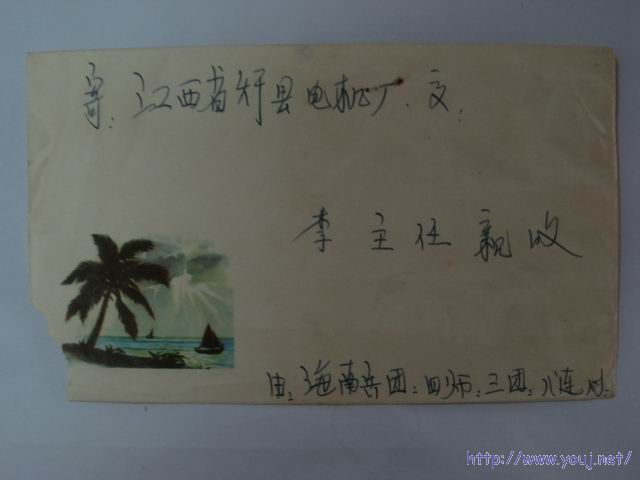 寄：江西省于县电机厂．交：
李主任亲收
由：海南兵团：四师：三团：八连
http://www.youj.net/